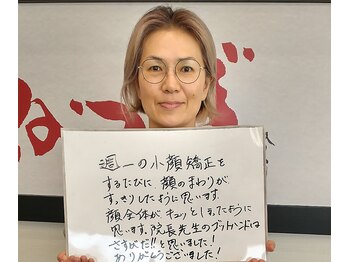 週一の小顔矯正を
するたびに 顔のまわりが
すっきりしたように思います。
顔全体がキュッとしまったように
思います。院長先生のゴットハンドは
さすがだ!!と思いました!
ありがとうございました!